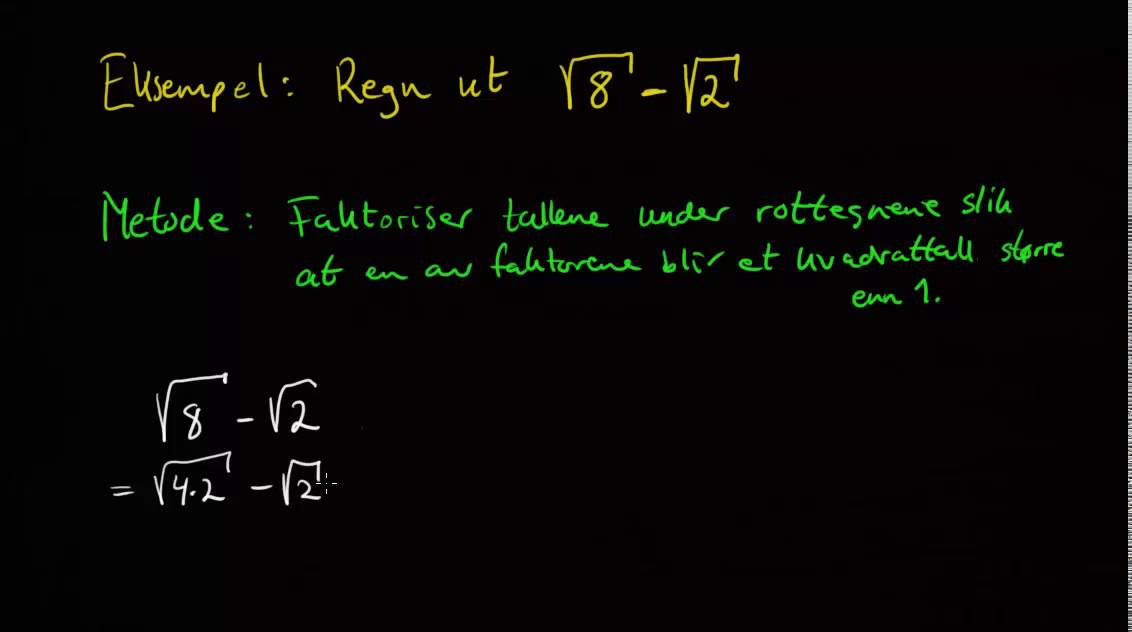 Eksempel: Regn ut √8 - √2
Metode: Faktoriser tallene under rottegnene slik
at en av faktorene blir et kvadrattall større
enn 1.
√8 - √2
= √4·2 - √2